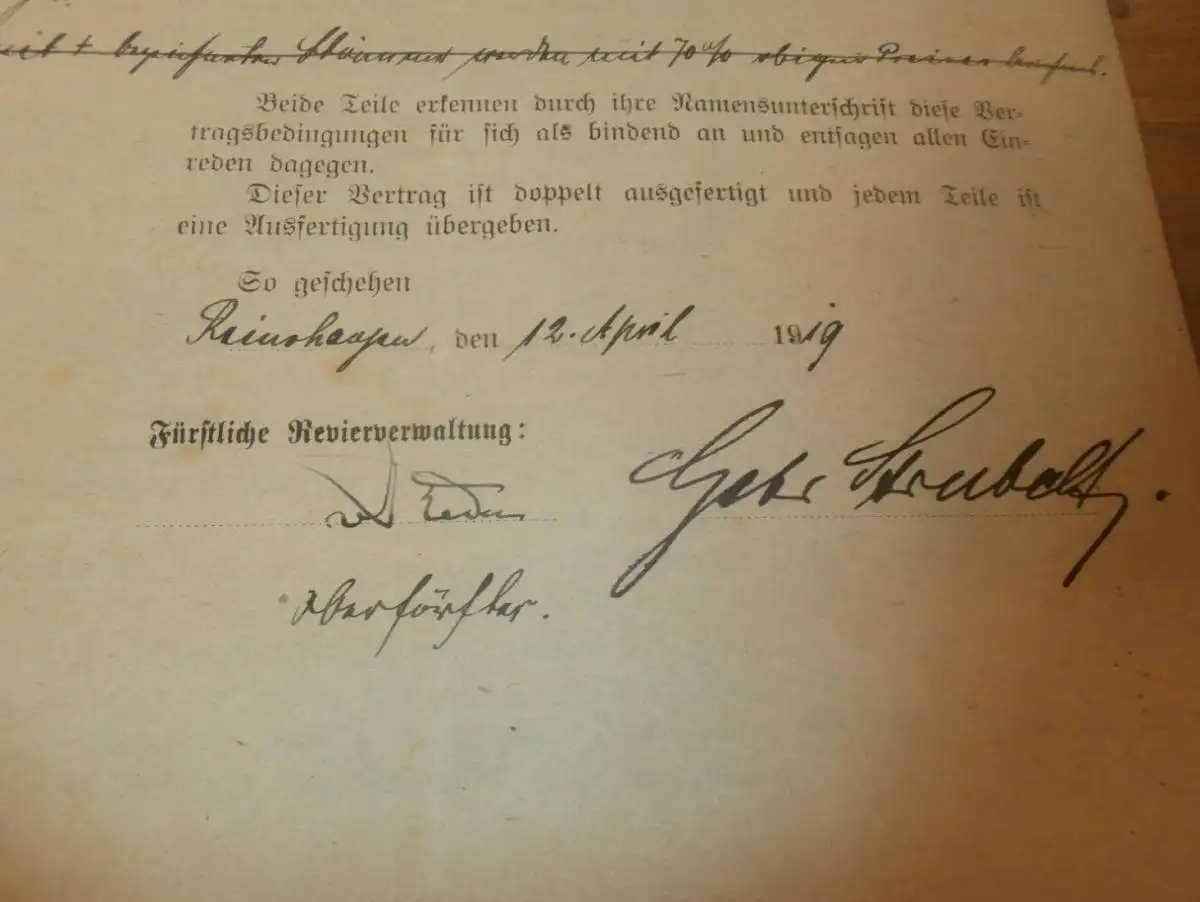 mit + bezeichneten Stämme werden mit 70 % obiger Preise berechnet.
Beide Teile erkennen durch ihre Namensunterschrift diese Ver-
tragsbedingungen für sich als bindend an und entsagen allen Ein-
reden dagegen.
Dieser Vertrag ist doppelt ausgefertigt und jedem Teile ist
eine Ausfertigung übergeben.
So geschehen
Reinshagen, den 12. April 1919
Fürstliche Revierverwaltung:
Gebr Strubalt.
Oberförster.